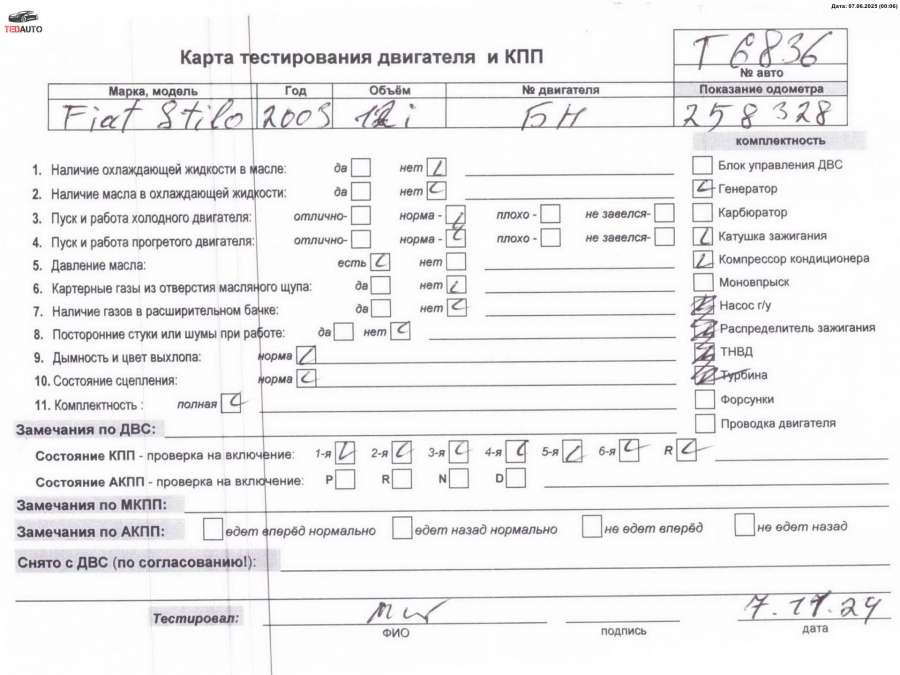 Дата: 07.06.2025 (00:06)
TEDAUTO
Карта тестирования двигателя и КПП
T 6836
№ авто
Марка, модель Год Объём № двигателя Показание одометра
Fiat Stilo 2003 БН 258 328
комплектность
1. Наличие охлаждающей жидкости в масле: да нет
2. Наличие масла в охлаждающей жидкости: да нет
3. Пуск и работа холодного двигателя: отлично- норма - плохо - не завелся-
4. Пуск и работа прогретого двигателя: отлично- норма - плохо - не завелся-
5. Давление масла: есть нет
6. Картерные газы из отверстия масляного щупа: да нет
7. Наличие газов в расширительном бачке: да нет
8. Посторонние стуки или шумы при работе: да нет
9. Дымность и цвет выхлопа: норма
10. Состояние сцепления: норма
11. Комплектность : полная
Блок управления ДВС
Генератор
Карбюратор
Катушка зажигания
Компрессор кондиционера
Моновпрыск
Насос г/у
Распределитель зажигания
ТНВД
Турбина
Форсунки
Проводка двигателя
Замечания по ДВС:
Состояние КПП - проверка на включение: 1-я 2-я 3-я 4-я 5-я 6-я R
Состояние АКПП - проверка на включение: P R N D
Замечания по МКПП:
Замечания по АКПП: едет вперёд нормально едет назад нормально не едет вперёд не едет назад
Снято с ДВС (по согласованию!):
Тестировал:
7.11.24
ФИО подпись дата